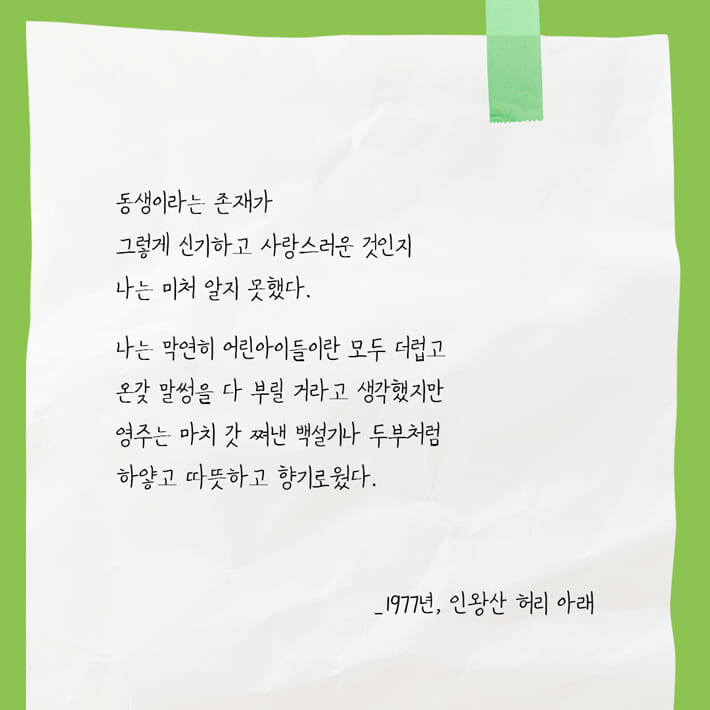 동생이라는 존재가
그렇게 신기하고 사랑스러운 것인지
나는 미처 알지 못했다.
나는 막연히 어린아이들이란 모두 더럽고
온갖 말썽을 다 부릴 거라고 생각했지만
영주는 마치 갓 쪄낸 백설기나 두부처럼
하얗고 따뜻하고 향기로웠다.
_1977년, 인왕산 허리 아래